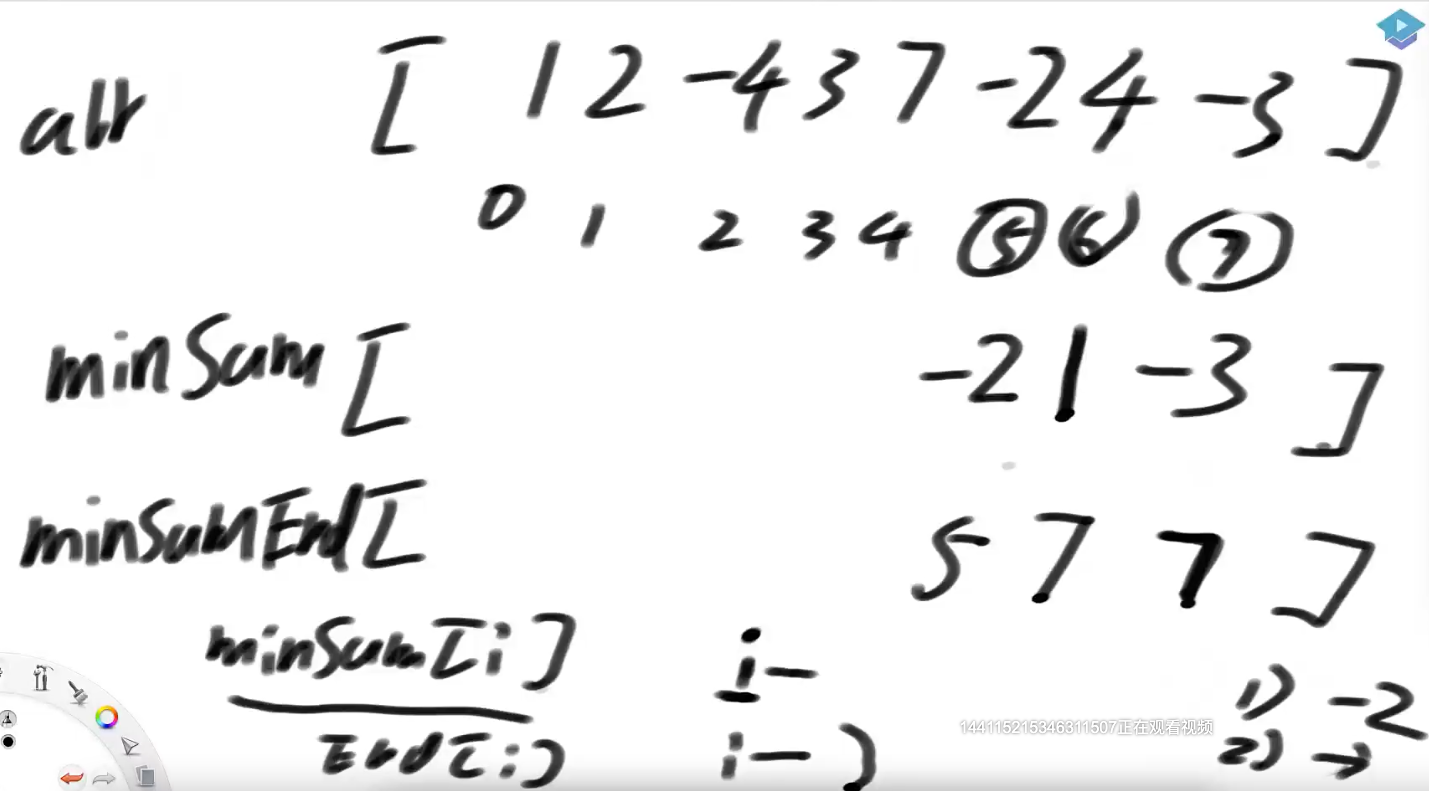 arr [ 1 2 -4 3 7 -2 4 -3 ]
0 1 2 3 4 5 6 7
minSum [ -2 1 -3 ]
minSumEnd[ 5 7 7 ]
minSum[i] i- 1) -2
End[i] i- ) 2) →
144115215346311507正在观看视频